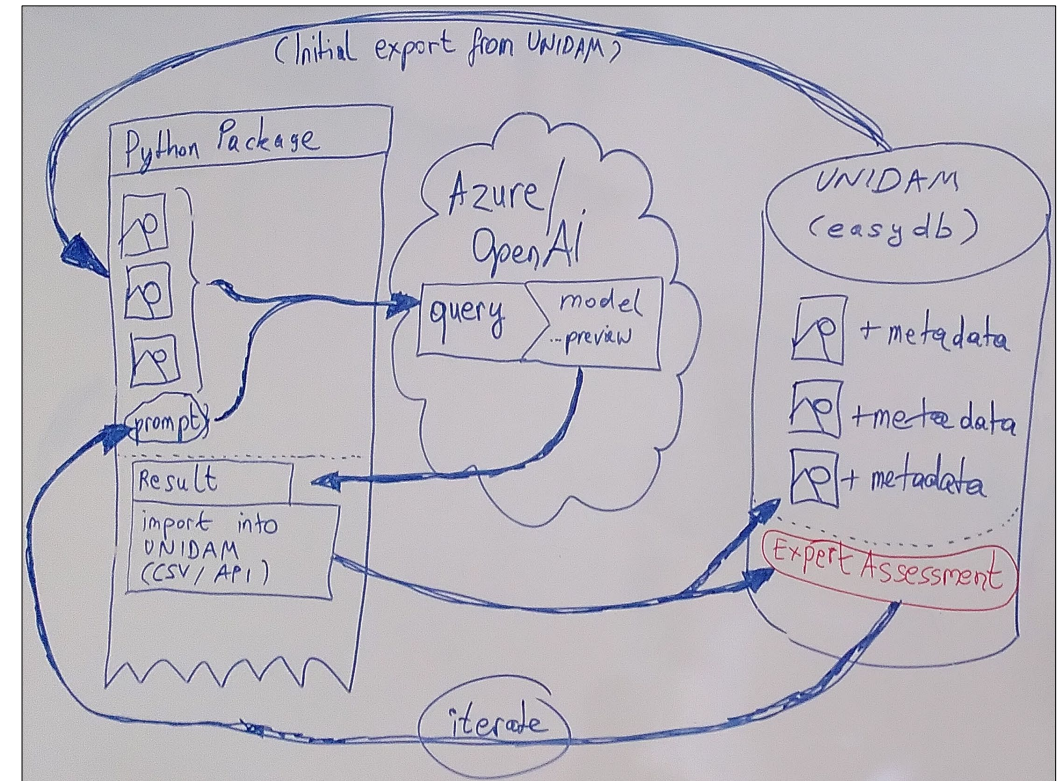 (Initial export from UNIDAM)
Python Package
prompt
Result
import into
UNIDAM
(CSV / API)
Azure/
OpenAI
query
model
...preview
UNIDAM
(easydb)
+ metadata
+ metadata
+ metadata
Expert Assessment
iterate